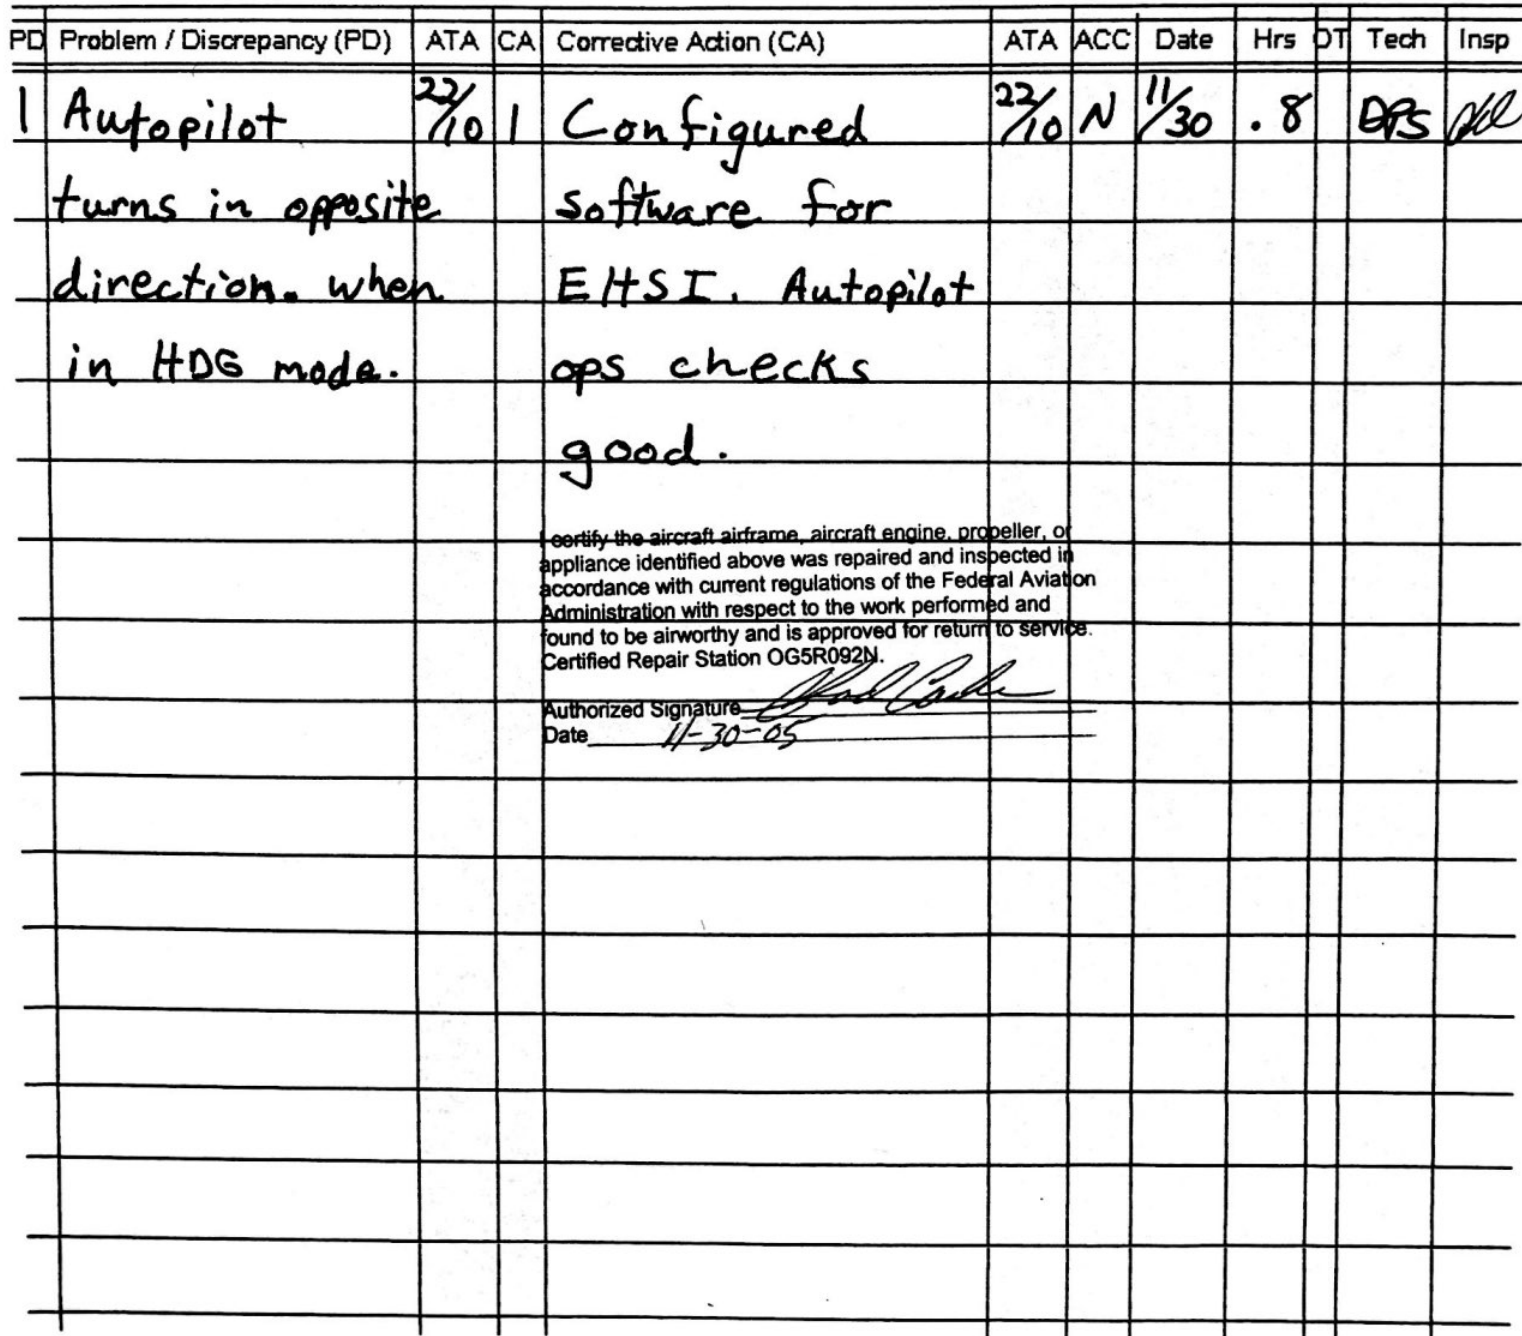 PD Problem / Discrepancy (PD) ATA CA Corrective Action (CA) ATA ACC Date Hrs OT Tech Insp
1 Autopilot 22/10 1 Configured 22/10 N 11/30 .8 DPS
turns in opposite software for
direction. when EHSI. Autopilot
in HDG mode. ops checks
good.
I certify the aircraft airframe, aircraft engine, propeller, or
appliance identified above was repaired and inspected in
accordance with current regulations of the Federal Aviation
Administration with respect to the work performed and
found to be airworthy and is approved for return to service.
Certified Repair Station OG5R092N.
Authorized Signature
Date 11-30-05